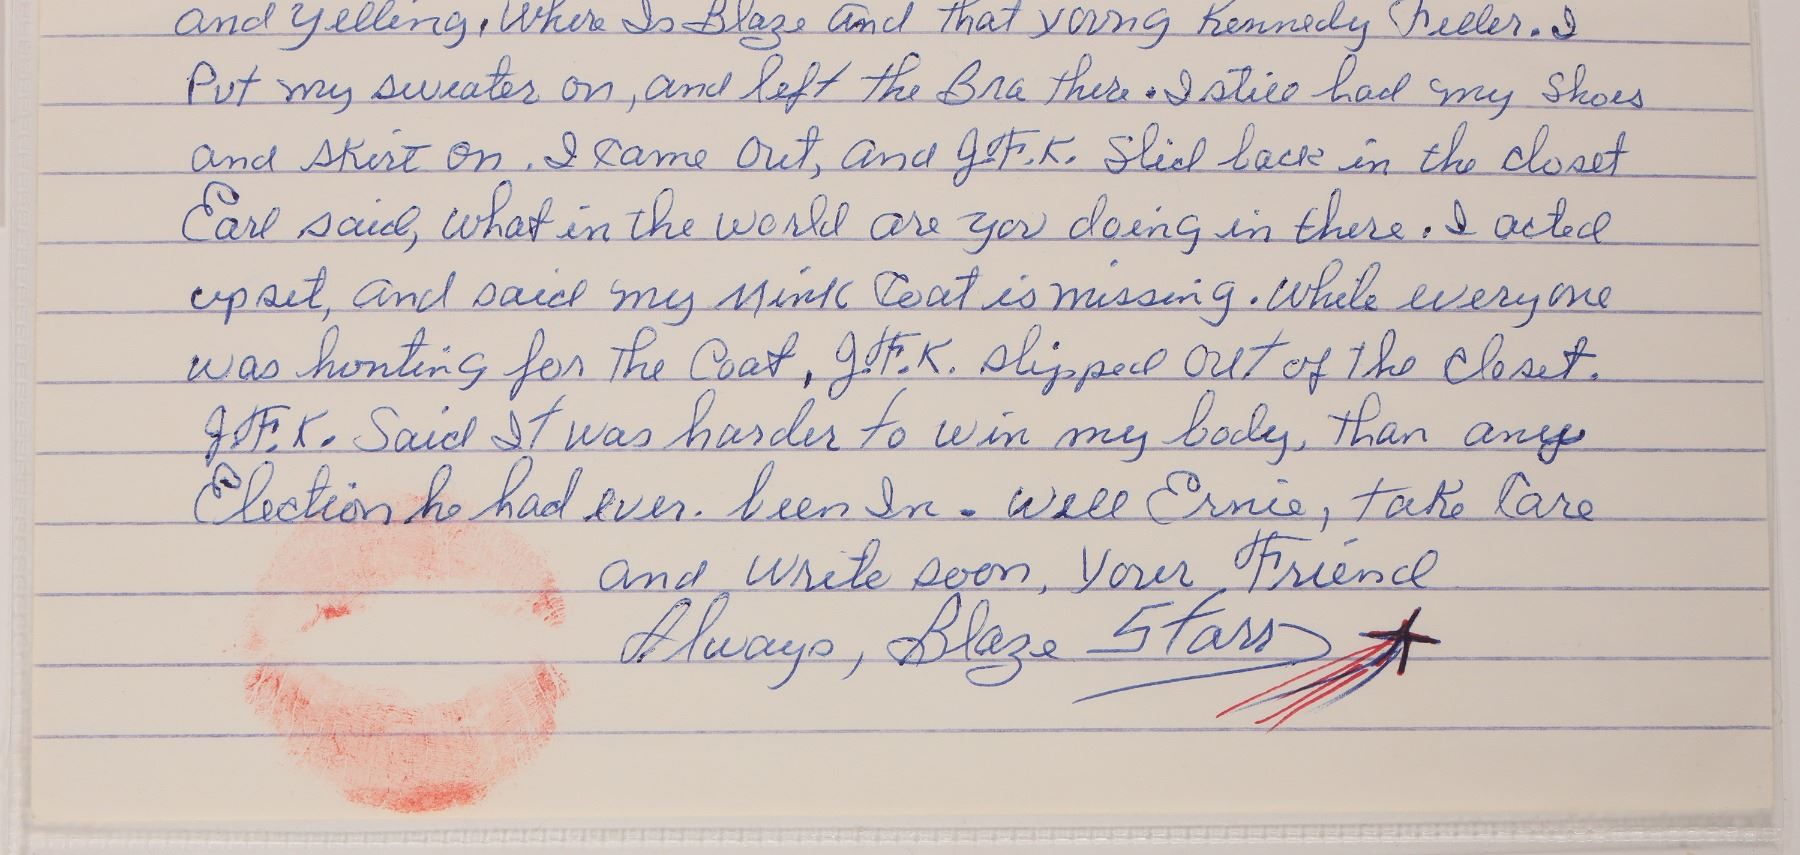 and yelling, Where Is Blaze and that young Kennedy Feller. I
Put my sweater on, and left the Bra there. I still had my Shoes
and skirt on. I came out, and J.F.K. Slid back in the closet
Earl said, what in the world are you doing in there. I acted
upset, and said my Mink Coat is missing. While everyone
was hunting for the Coat, J.F.K. slipped out of the closet.
J.F.K. Said It was harder to win my body, than any
Election he had ever. been In. Well Ernie, take Care
and write soon, Your Friend
Always, Blaze Starr